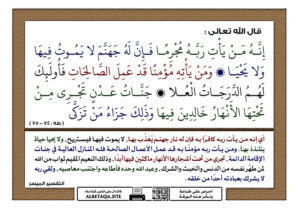 قال الله تعالى :
إِنَّهُ مَنْ يَأْتِ رَبَّهُ مُجْرِمًا فَإِنَّ لَهُ جَهَنَّمَ لَا يَمُوتُ فِيهَا
وَلَا يَحْيَىٰ ۞ وَمَنْ يَأْتِهِ مُؤْمِنًا قَدْ عَمِلَ الصَّالِحَاتِ فَأُولَٰئِكَ
لَهُمُ الدَّرَجَاتُ الْعُلَىٰ ۞ جَنَّاتُ عَدْنٍ تَجْرِي مِنْ
تَحْتِهَا الْأَنْهَارُ خَالِدِينَ فِيهَا وَذَٰلِكَ جَزَاءُ مَنْ تَزَكَّىٰ
(طه: ٧٤ - ٧٥)
أي إنه من يأت ربه كافرًا به فإن له نار جهنم يُعذَّب بها، لا يموت فيها فيستريح، ولا يحيا حياة
يتلذذ بها. ومن يأت ربه مؤمنًا به قد عمل الأعمال الصالحة فله المنازل العالية في جنات
الإقامة الدائمة، تجري من تحت أشجارها الأنهار ماكثين فيها أبدًا، وذلك النعيم المقيم ثواب من الله
لمن طهَّر نفسه من الدنس والخبث والشرك، وعبد الله وحده فأطاعه واجتنب معاصيه، ولقي ربه
لا يشرك بعبادته أحدًا من خلقه.
التفسير الميسر
ALBETAQA.SITE